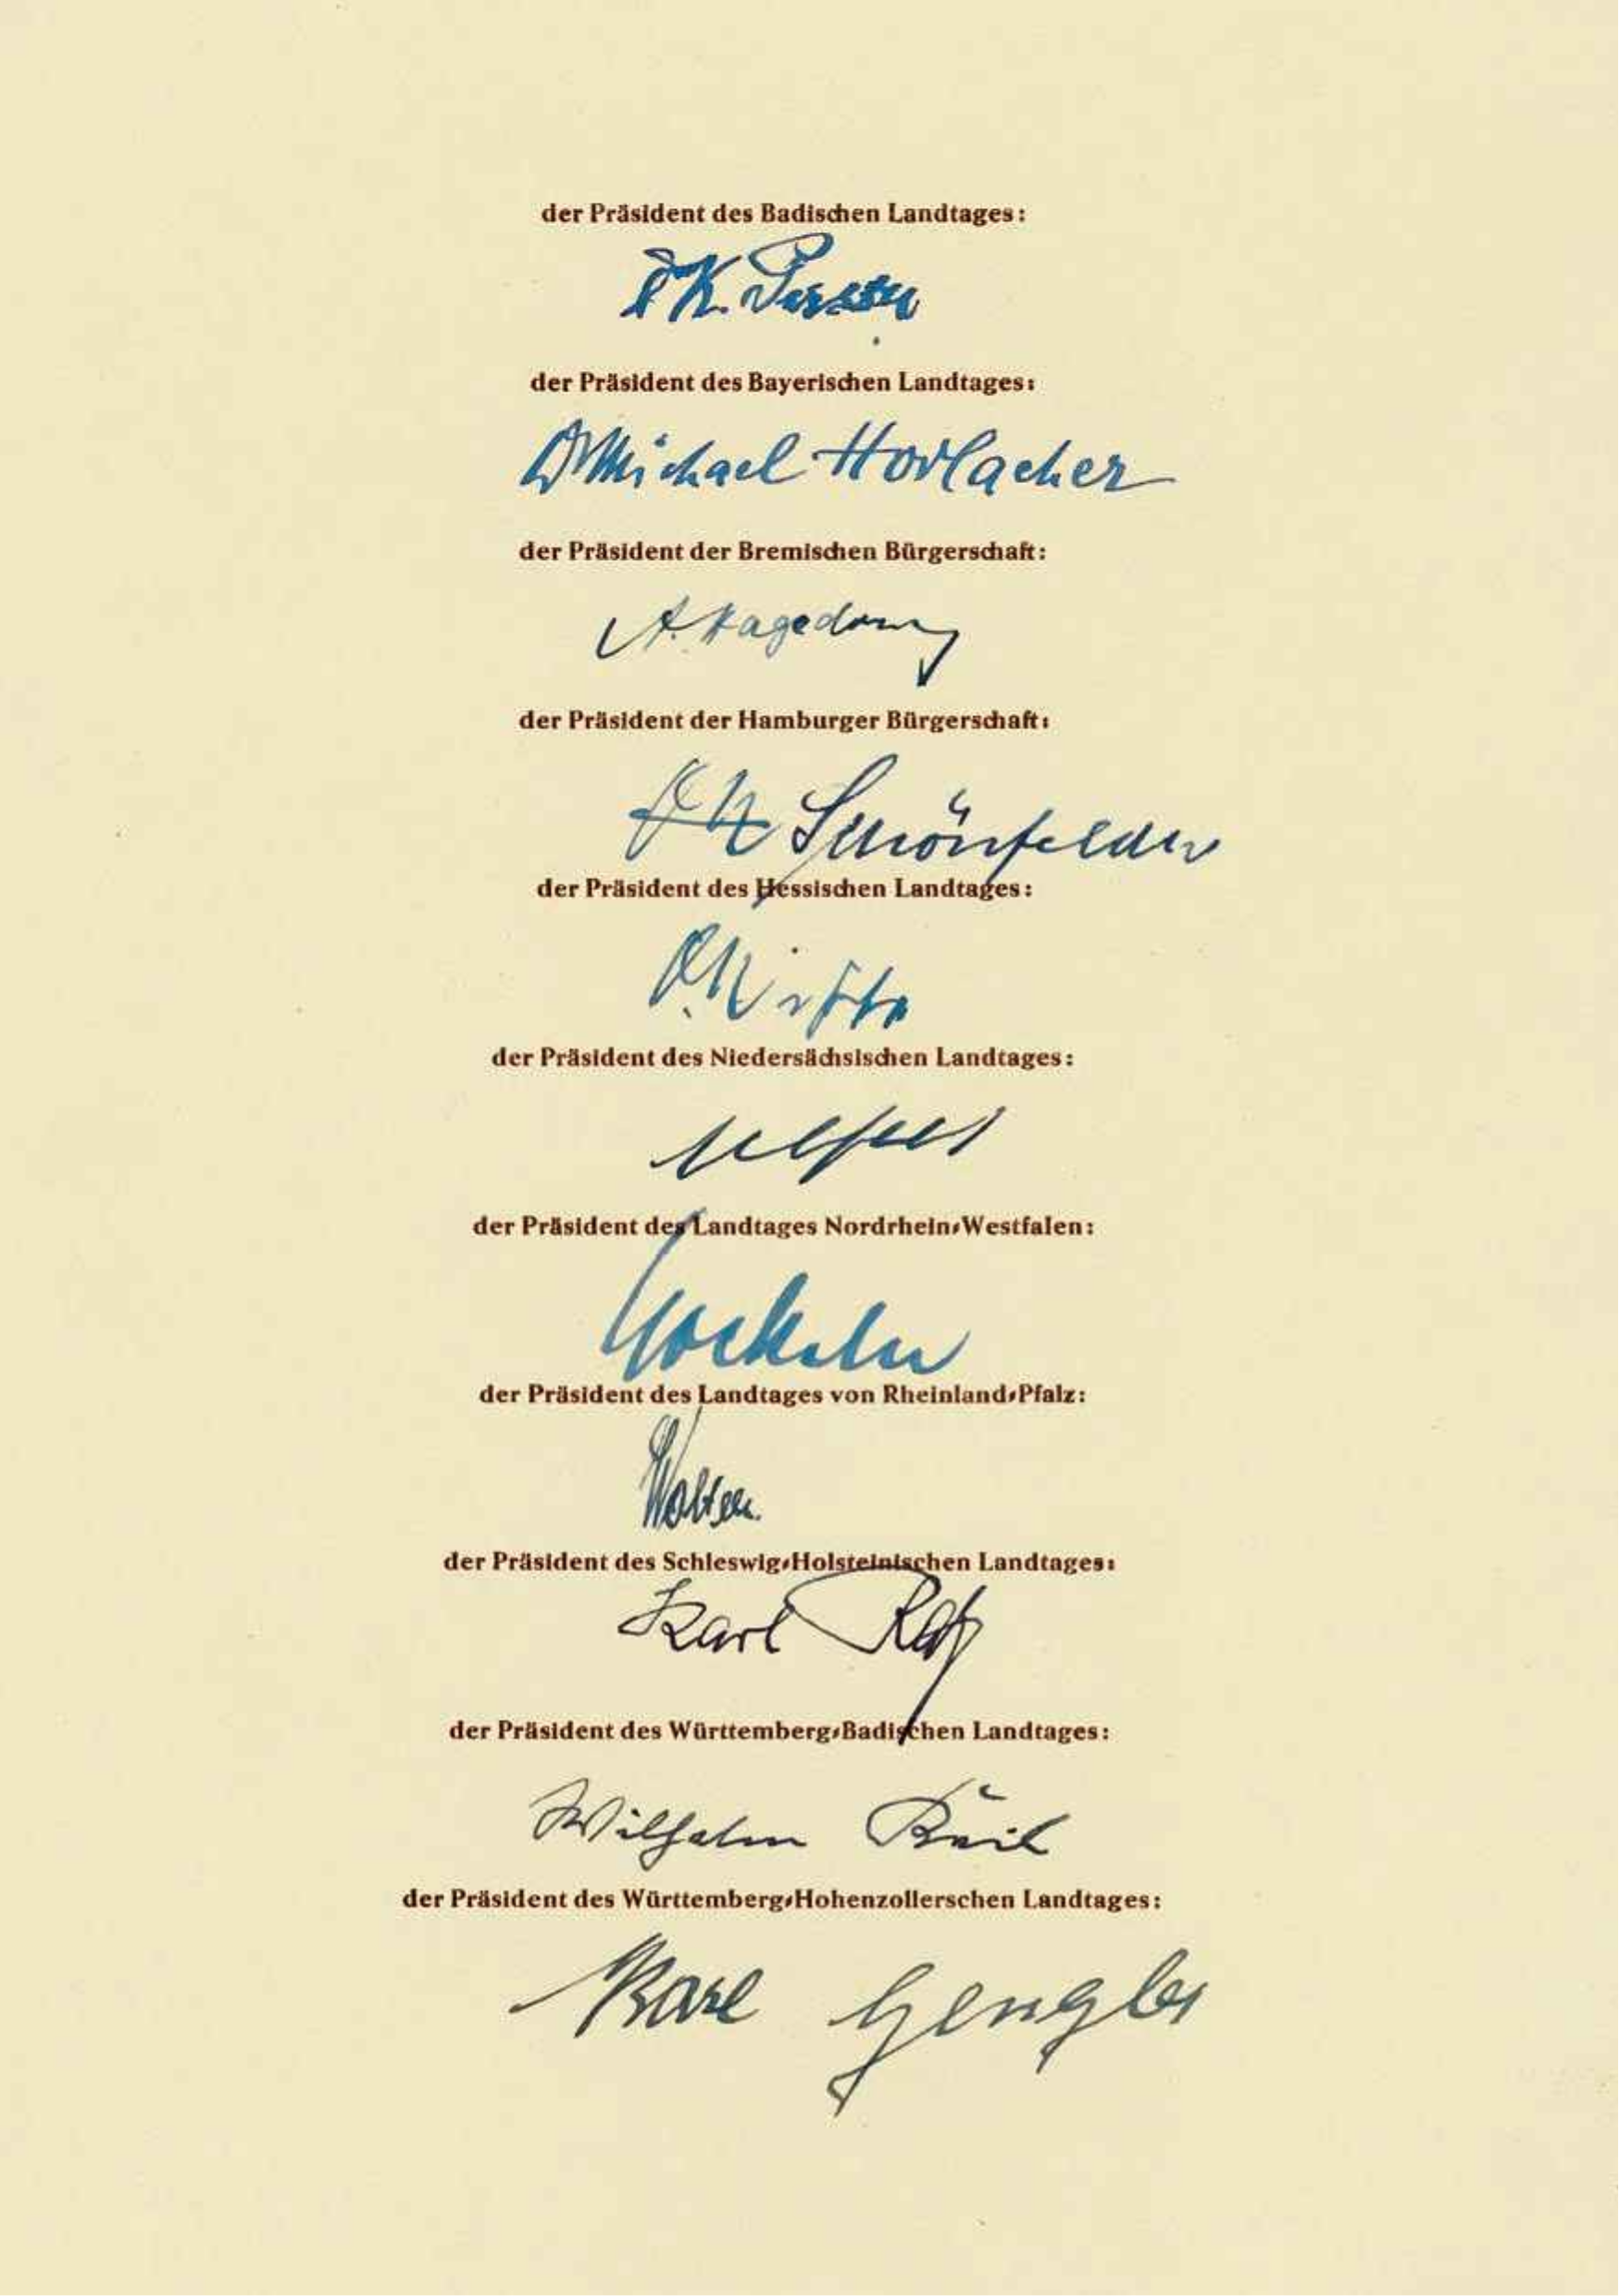 der Präsident des Badischen Landtages:
der Präsident des Bayerischen Landtages:
Dr Michael Horlacher
der Präsident der Bremischen Bürgerschaft:
A. Hagedorn
der Präsident der Hamburger Bürgerschaft:
Schönfelder
der Präsident des Hessischen Landtages:
O. Witte
der Präsident des Niedersächsischen Landtages:
der Präsident des Landtages Nordrhein-Westfalen:
Gockeln
der Präsident des Landtages von Rheinland-Pfalz:
der Präsident des Schleswig-Holsteinischen Landtages:
Karl Ratz
der Präsident des Württemberg-Badischen Landtages:
Wilhelm Keil
der Präsident des Württemberg-Hohenzollerschen Landtages:
Karl Gengler